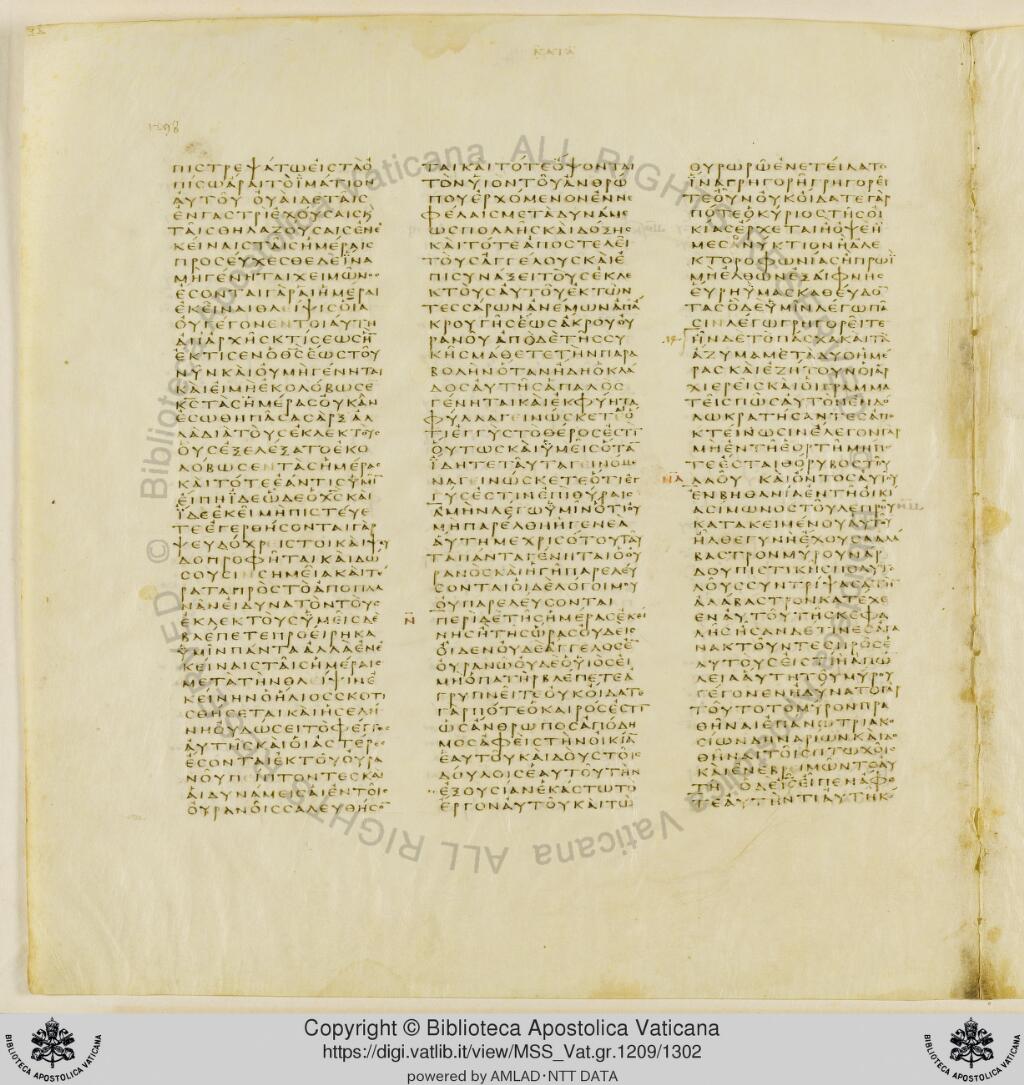 ΚΑΤΑ
1298
ΠΙΣΤΡΕΨΑΤΩΕΙΣΤΑΟ
ΠΙΣΩΑΡΑΙΤΟΙΜΑΤΙΟΝ
ΑΥΤΟΥ ΟΥΑΙΔΕΤΑΙΣ
ΕΝΓΑΣΤΡΙΕΧΟΥΣΑΙΣΚ
ΤΑΙΣΘΗΛΑΖΟΥΣΑΙΣΕΝΕ
ΚΕΙΝΑΙΣΤΑΙΣΗΜΕΡΑΙΣ
ΠΡΟΣΕΥΧΕΣΘΕΔΕΙΝΑ
ΜΗΓΕΝΗΤΑΙΧΕΙΜΩΝΟΣ
ΕΣΟΝΤΑΙΓΑΡΑΙΗΜΕΡΑΙ
ΕΚΕΙΝΑΙΘΛΕΙΨΙΣΟΙΑ
ΟΥΓΕΓΟΝΕΝΤΟΙΑΥΤΗ
ΑΠΑΡΧΗΣΚΤΙΣΕΩΣΗ
ΕΚΤΙΣΕΝΟΘΣΕΩΣΤΟΥ
ΝΥΝΚΑΙΟΥΜΗΓΕΝΗΤΑΙ
ΚΑΙΕΙΜΗΕΚΟΛΟΒΩΣΕ
ΚΣΤΑΣΗΜΕΡΑΣΟΥΚΑΝ
ΕΣΩΘΗΠΑΣΑΣΑΡΞΑΛ
ΛΑΔΙΑΤΟΥΣΕΚΛΕΚΤΟΥΣ
ΟΥΣΕΞΕΛΕΞΑΤΟΕΚΟ
ΛΟΒΩΣΕΝΤΑΣΗΜΕΡΑΣ
ΚΑΙΤΟΤΕΕΑΝΤΙΣΥΜΙ
ΕΙΠΗΙΔΕΩΔΕΟΧΣΚΑΙ
ΙΔΕΕΚΕΙΜΗΠΙΣΤΕΥΕ
ΤΕΕΓΕΡΘΗΣΟΝΤΑΙΓΑΡ
ΨΕΥΔΟΧΡΕΙΣΤΟΙΚΑΙΨΕΥ
ΔΟΠΡΟΦΗΤΑΙΚΑΙΔΩ
ΣΟΥΣΙΝΣΗΜΕΙΑΚΑΙΤΕ
ΡΑΤΑΠΡΟΣΤΟΑΠΟΠΛΑ
ΝΑΝΕΙΔΥΝΑΤΟΝΤΟΥΣ
ΕΚΛΕΚΤΟΥΣΥΜΕΙΣΔΕ
ΒΛΕΠΕΤΕΠΡΟΕΙΡΗΚΑ
ΥΜΙΝΠΑΝΤΑΑΛΛΑΕΝΕ
ΚΕΙΝΑΙΣΤΑΙΣΗΜΕΡΑΙΣ
ΜΕΤΑΤΗΝΘΛΕΙΨΙΝΕ
ΚΕΙΝΗΝΟΗΛΙΟΣΣΚΟΤΙ
ΣΘΗΣΕΤΑΙΚΑΙΗΣΕΛΗ
ΝΗΟΥΔΩΣΕΙΤΟΦΕΓΓΟΣ
ΑΥΤΗΣΚΑΙΟΙΑΣΤΕΡΕΣ
ΕΣΟΝΤΑΙΕΚΤΟΥΟΥΡΑ
ΝΟΥΠΕΙΠΤΟΝΤΕΣΚΑΙ
ΑΙΔΥΝΑΜΕΙΣΑΙΕΝΤΟΙΣ
ΟΥΡΑΝΟΙΣΣΑΛΕΥΘΗΣΟ
ΤΑΙΚΑΙΤΟΤΕΟΨΟΝΤΑΙ
ΤΟΝΥΙΟΝΤΟΥΑΝΘΡΩ
ΠΟΥΕΡΧΟΜΕΝΟΝΕΝΝΕ
ΦΕΛΑΙΣΜΕΤΑΔΥΝΑΜΕ
ΩΣΠΟΛΛΗΣΚΑΙΔΟΞΗΣ
ΚΑΙΤΟΤΕΑΠΟΣΤΕΛΕΙ
ΤΟΥΣΑΓΓΕΛΟΥΣΚΑΙΕ
ΠΙΣΥΝΑΞΕΙΤΟΥΣΕΚΛΕ
ΚΤΟΥΣΑΥΤΟΥΕΚΤΩΝ
ΤΕΣΣΑΡΩΝΑΝΕΜΩΝΑΠΑ
ΚΡΟΥΓΗΣΕΩΣΑΚΡΟΥΟΥ
ΡΑΝΟΥΑΠΟΔΕΤΗΣΣΥ
ΚΗΣΜΑΘΕΤΕΤΗΝΠΑΡΑ
ΒΟΛΗΝΟΤΑΝΗΔΗΟΚΛΑ
ΔΟΣΑΥΤΗΣΑΠΑΛΟΣ
ΓΕΝΗΤΑΙΚΑΙΕΚΦΥΗΤΑ
ΦΥΛΛΑΓΕΙΝΩΣΚΕΤΕΟ
ΤΙΕΓΓΥΣΤΟΘΕΡΟΣΕΣΤΙ
ΟΥΤΩΣΚΑΙΥΜΕΙΣΟΤΑ
ΙΔΗΤΕΤΑΥΤΑΓΕΙΝΟΜΕ
ΝΑΓΕΙΝΩΣΚΕΤΕΟΤΙΕΓ
ΓΥΣΕΣΤΙΝΕΠΙΘΥΡΑΙΣ
ΑΜΗΝΛΕΓΩΥΜΙΝΟΤΙΟΥ
ΜΗΠΑΡΕΛΘΗΗΓΕΝΕΑ
ΑΥΤΗΜΕΧΡΙΣΟΤΟΥΤΑΥ
ΤΑΠΑΝΤΑΓΕΝΗΤΑΙΟΟΥ
ΡΑΝΟΣΚΑΙΗΓΗΠΑΡΕΛΕΥ
ΣΟΝΤΑΙΟΙΔΕΛΟΓΟΙΜΟΥ
ΟΥΠΑΡΕΛΕΥΣΟΝΤΑΙ
Ν ΠΕΡΙΔΕΤΗΣΗΜΕΡΑΣΕΚΕΙ
ΝΗΣΗΤΗΣΩΡΑΣΟΥΔΕΙΣ
ΟΙΔΕΝΟΥΔΕΑΓΓΕΛΟΣΕ
ΟΥΡΑΝΩΟΥΔΕΟΥΙΟΣΕΙ
ΜΗΟΠΑΤΗΡΒΛΕΠΕΤΕΑ
ΓΡΥΠΝΕΙΤΕΟΥΚΟΙΔΑΤΕ
ΓΑΡΠΟΤΕΟΚΑΙΡΟΣΕΣΤΙ
ΩΣΑΝΘΡΩΠΟΣΑΠΟΔΗ
ΜΟΣΑΦΕΙΣΤΗΝΟΙΚΙΑ
ΕΑΥΤΟΥΚΑΙΔΟΥΣΤΟΙΣ
ΔΟΥΛΟΙΣΕΑΥΤΟΥΤΗΝ
ΕΞΟΥΣΙΑΝΕΚΑΣΤΩΤΟ
ΕΡΓΟΝΑΥΤΟΥΚΑΙΤΩ
ΘΥΡΩΡΩΕΝΕΤΕΙΛΑΤΟ
ΙΝΑΓΡΗΓΟΡΗΓΡΗΓΟΡΕΙ
ΤΕΟΥΝΟΥΚΟΙΔΑΤΕΓΑΡ
ΠΟΤΕΟΚΥΡΙΟΣΤΗΣΟΙ
ΚΙΑΣΕΡΧΕΤΑΙΗΟΨΕΗ
ΜΕΣΟΝΥΚΤΙΟΝΗΑΛΕ
ΚΤΟΡΟΦΩΝΙΑΣΗΠΡΩΙ
ΜΗΕΛΘΩΝΕΞΑΙΦΝΗΣ
ΕΥΡΗΥΜΑΣΚΑΘΕΥΔΟ
ΤΑΣΟΔΕΥΜΙΝΛΕΓΩΠΑ
ΣΙΝΛΕΓΩΓΡΗΓΟΡΕΙΤΕ
ΗΝΔΕΤΟΠΑΣΧΑΚΑΙΤΑ
ΑΖΥΜΑΜΕΤΑΔΥΟΗΜΕ
ΡΑΣΚΑΙΕΖΗΤΟΥΝΟΙΑΡ
ΧΙΕΡΕΙΣΚΑΙΟΙΓΡΑΜΜΑ
ΤΕΙΣΠΩΣΑΥΤΟΝΕΝΔΟ
ΛΩΚΡΑΤΗΣΑΝΤΕΣΑΠΟ
ΚΤΕΙΝΩΣΙΝΕΛΕΓΟΝΓΑΡ
ΜΗΕΝΤΗΕΟΡΤΗΜΗΠΟ
ΤΕΕΣΤΑΙΘΟΡΥΒΟΣΤΟΥ
ΝΑ ΛΑΟΥ ΚΑΙΟΝΤΟΣΑΥΤΟΥ
ΕΝΒΗΘΑΝΙΑΕΝΤΗΟΙΚΙ
ΑΣΙΜΩΝΟΣΤΟΥΛΕΠΡΟΥ
ΚΑΤΑΚΕΙΜΕΝΟΥΑΥΤΟΥ
ΗΛΘΕΓΥΝΗΕΧΟΥΣΑΑΛΑ
ΒΑΣΤΡΟΝΜΥΡΟΥΝΑΡ
ΔΟΥΠΙΣΤΙΚΗΣΠΟΛΥΤΕ
ΛΟΥΣΣΥΝΤΡΙΨΑΣΑΤΗ
ΑΛΑΒΑΣΤΡΟΝΚΑΤΕΧΕ
ΕΝΑΥΤΟΥΤΗΣΚΕΦΑ
ΛΗΣΗΣΑΝΔΕΤΙΝΕΣΑΓΑ
ΝΑΚΤΟΥΝΤΕΣΠΡΟΣΕ
ΑΥΤΟΥΣΕΙΣΤΙΗΑΠΩ
ΛΕΙΑΑΥΤΗΤΟΥΜΥΡΟΥ
ΓΕΓΟΝΕΝΗΔΥΝΑΤΟΓΑΡ
ΤΟΥΤΟΤΟΜΥΡΟΝΠΡΑ
ΘΗΝΑΙΕΠΑΝΩΤΡΙΑΚΟ
ΣΙΩΝΔΗΝΑΡΙΩΝΚΑΙΔΟ
ΘΗΝΑΙΤΟΙΣΠΤΩΧΟΙΣ
ΚΑΙΕΝΕΒΡΙΜΩΝΤΟΑΥ
ΤΗ ΟΔΕΙΣΕΙΠΕΝΑΦΕ
ΤΕΑΥΤΗΝΤΙΑΥΤΗΚΟ
Copyright © Biblioteca Apostolica Vaticana
https://digi.vatlib.it/view/MSS_Vat.gr.1209/1302
powered by AMLAD･NTT DATA
BIBLIOTECA APOSTOLICA VATICANA
BIBLIOTECA APOSTOLICA VATICANA